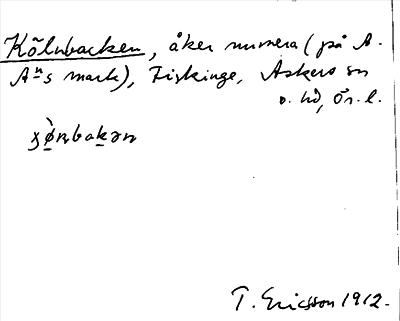 Kölnbacken, åker numera (på A.
A:ns mark), Fiskinge, Askers sn
o. hd, Ör. l.
T. Ericsson 1912.